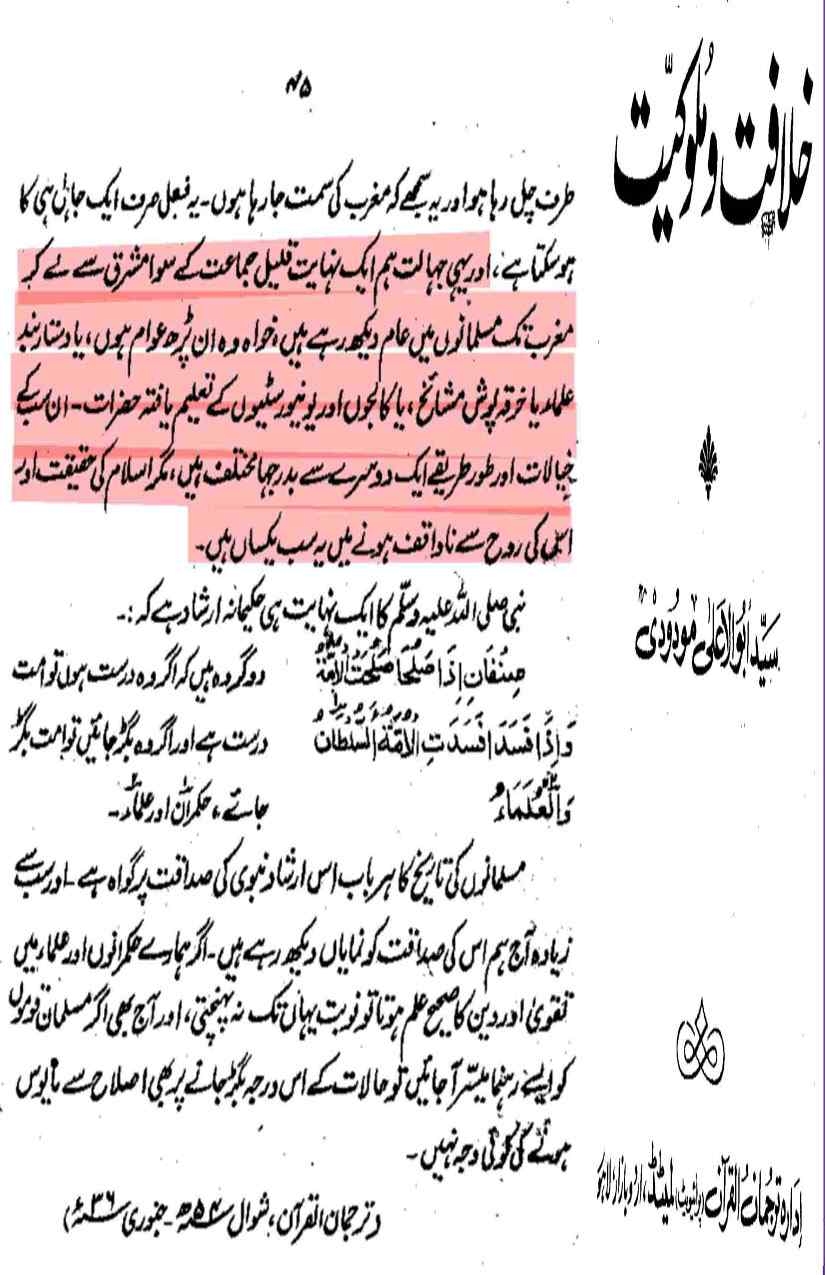 خلافت و ملوکیّت
سیّد ابوالاعلیٰ مودودیؒ
ادارہ ترجمان القرآن (پرائیویٹ) لمیٹڈ، اردو بازار لاہور
۴۵
طرف چل رہا ہو اور یہ سمجھے کہ مغرب کی سمت جا رہا ہوں۔ یہ فعل صرف ایک جاہل ہی کا
ہو سکتا ہے، اور یہی جہالت ہم ایک نہایت قلیل جماعت کے سوا مشرق سے لے کر
مغرب تک مسلمانوں میں عام دیکھ رہے ہیں، خواہ وہ ان پڑھ عوام ہوں، یا دستار بند
علماء یا خرقہ پوش مشائخ، یا کالجوں اور یونیورسٹیوں کے تعلیم یافتہ حضرات۔ ان سب کے
خیالات اور طور طریقے ایک دوسرے سے بدرجہا مختلف ہیں، مگر اسلام کی حقیقت اور
اس کی روح سے ناواقف ہونے میں یہ سب یکساں ہیں۔
نبی صلی اللہ علیہ وسلّم کا ایک نہایت ہی حکیمانہ ارشاد ہے کہ:۔
صِنْفَانِ اِذَا صَلُحَا صَلُحَتِ الْاُمَّةُ دو گروہ ہیں کہ اگر وہ درست ہوں تو امت
وَاِذَا فَسَدَا فَسَدَتِ الْاُمَّةُ السُّلْطَانُ درست ہے اور اگر وہ بگڑ جائیں تو امت بگڑ
وَالْعُلَمَاءُ جائے، حکمران اور علماء۔
مسلمانوں کی تاریخ کا ہر باب اس ارشاد نبوی کی صداقت پر گواہ ہے۔ اور سب سے
زیادہ آج ہم اس کی صداقت کو نمایاں دیکھ رہے ہیں۔ اگر ہمارے حکمرانوں اور علماء میں
تقویٰ اور دین کا صحیح علم ہوتا تو نوبت یہاں تک نہ پہنچتی، اور آج بھی اگر مسلمان قوموں
کو ایسے رہنما میسّر آجائیں تو حالات کے اس درجہ بگڑ جانے پر بھی اصلاح سے مایوس
ہونے کی کوئی وجہ نہیں۔
(ترجمان القرآن، شوال ۵۴ھ۔ جنوری ۳۶ء)